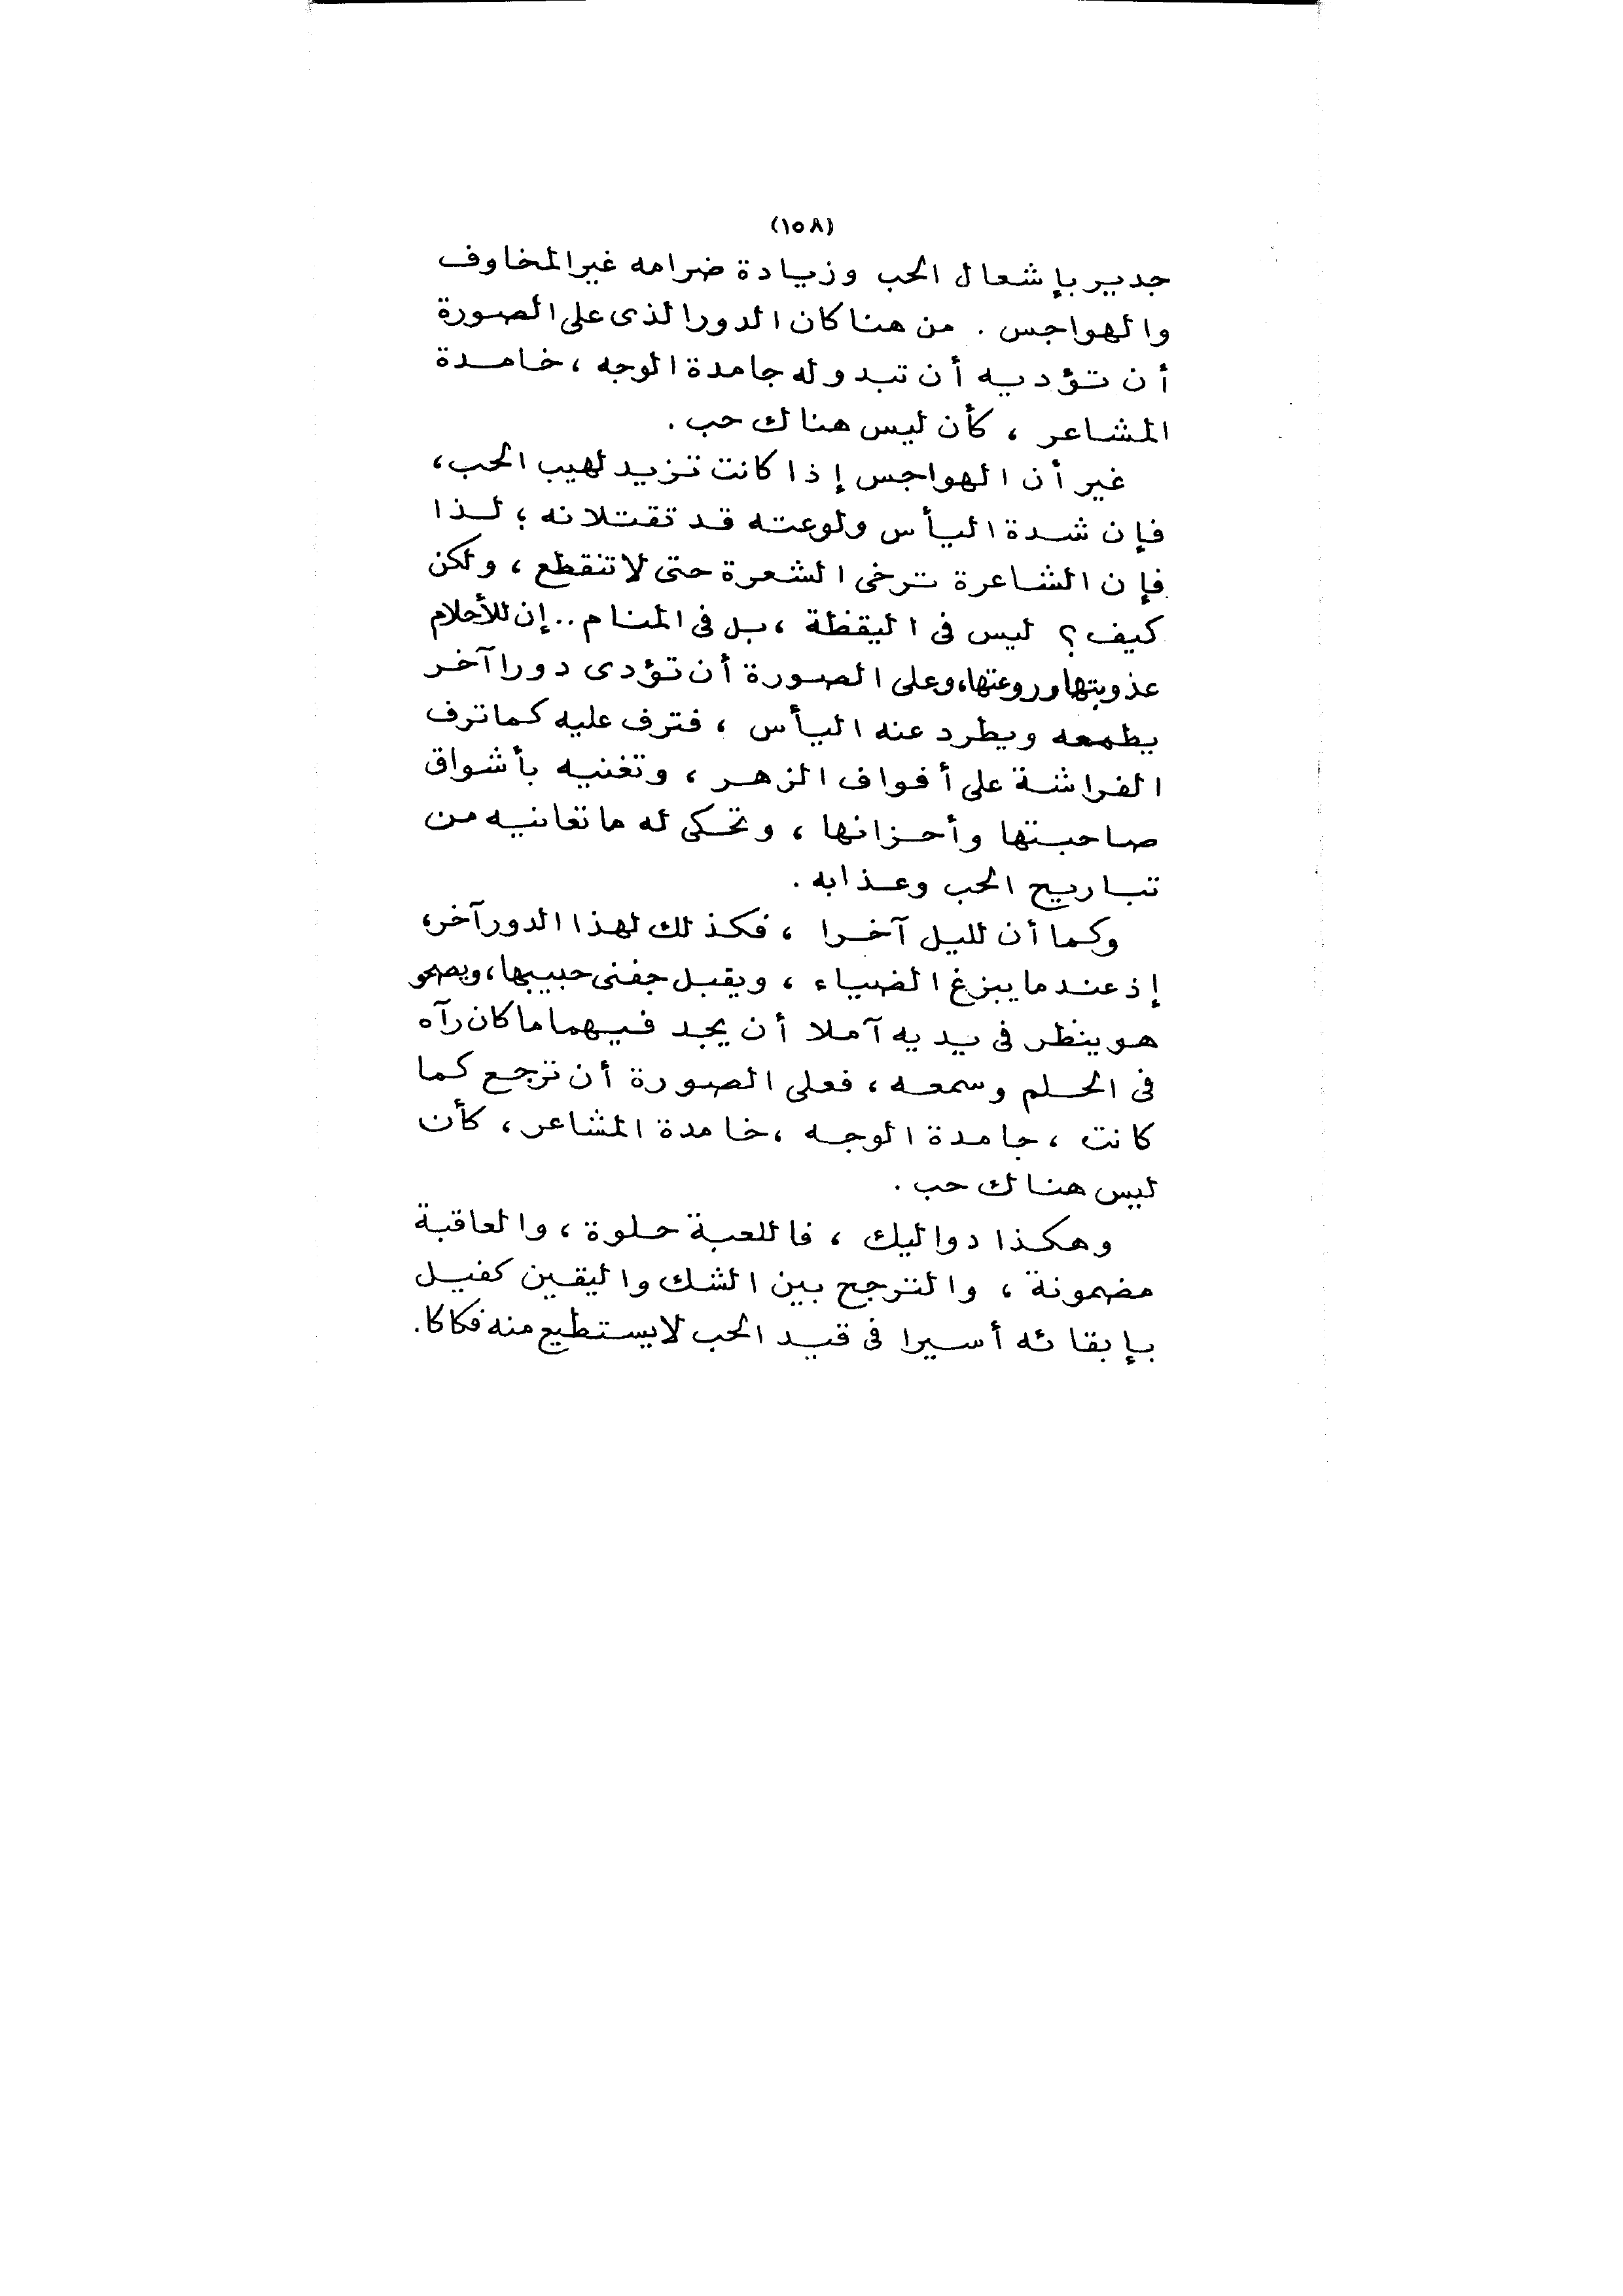 (١٥٨)
جدير بإشعال الحب وزيادة ضرامه غير المخاوف
والهواجس . من هنا كان الدور الذى على الصورة
أن تؤديه أن تبدو له جامدة الوجه ، خامدة
المشاعر ، كأن ليس هناك حب .
غير أن الهواجس إذا كانت تزيد لهيب الحب ،
فإن شدة اليأس ولوعته قد تقتلانه ؛ لذا
فإن الشاعرة ترخى الشعرة حتى لا تنقطع ، ولكن
كيف ؟ ليس فى اليقظة ، بل فى المنام .. إن للأحلام
عذوبتها وروعتها، وعلى الصورة أن تؤدى دورا آخر
يطمعه ويطرد عنه اليأس ، فترف عليه كما ترف
الفراشة على أفواف الزهر ، وتغنيه بأشواق
صاحبتها وأحزانها ، وتحكى له ما تعانيه من
تباريح الحب وعذابه .
وكما أن لليل آخرا ، فكذلك لهذا الدور آخر،
إذ عندما يبزغ الضياء ، ويقبل جفنى حبيبها، ويصحو
هو ينظر فى يديه آملا أن يجد فيهما ما كان رآه
فى الحلم وسمعه ، فعلى الصورة أن ترجع كما
كانت ، جامدة الوجه ، خامدة المشاعر ، كأن
ليس هناك حب .
وهكذا دواليك ، فاللعبة حلوة ، والعاقبة
مضمونة ، والترجح بين الشك واليقين كفيل
بإبقائه أسيرا فى قيد الحب لا يستطيع منه فكاكا.